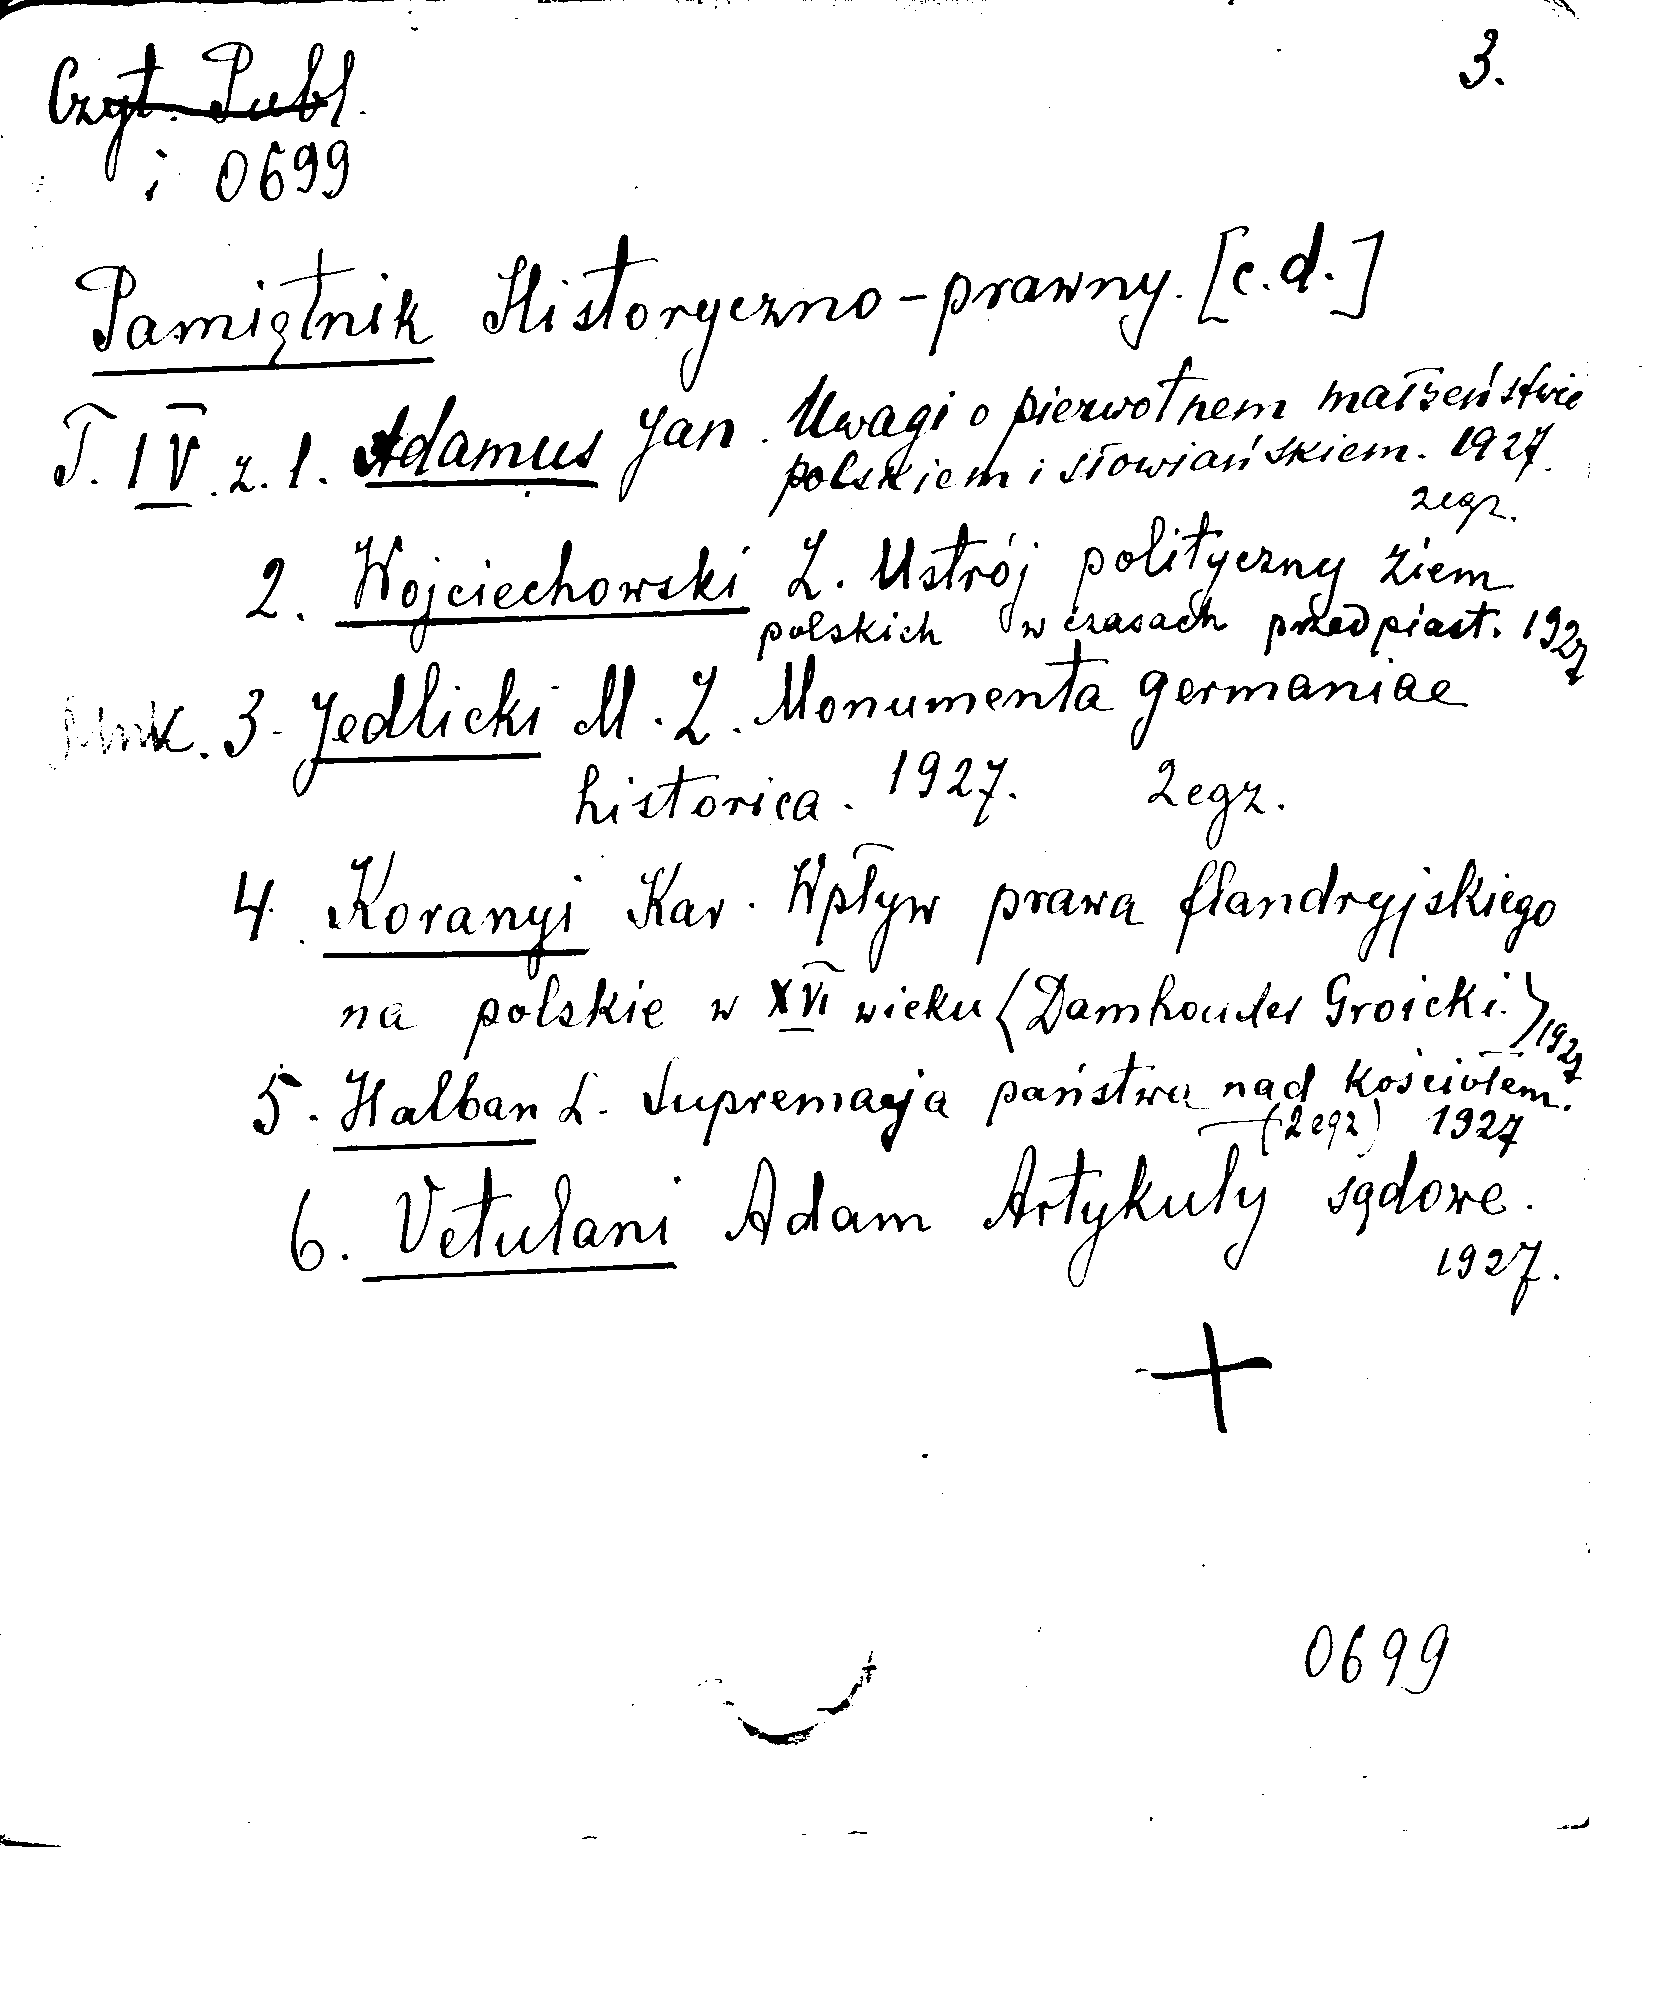 Czyt. Publ.
3.
i 0699
Pamiętnik Historyczno-prawny. [c.d.]
T. IV. z. 1. Adamus Jan. Uwagi o pierwotnem małżeństwie
polskiem i słowiańskiem. 1927.
2 egz.
2. Wojciechowski Z. Ustrój polityczny ziem
polskich w czasach przedpiast. 1927
3. Jedlicki M. Z. Monumenta germaniae
historica. 1927. 2 egz.
4. Koranyi Kar. Wpływ prawa flandryjskiego
na polskie w XVI wieku (Damhouder Groicki.) 1927
5. Halban L. Supremacja państwa nad kościołem.
(2 egz) 1927
6. Vetulani Adam Artykuły sądowe.
1927.
+
0699